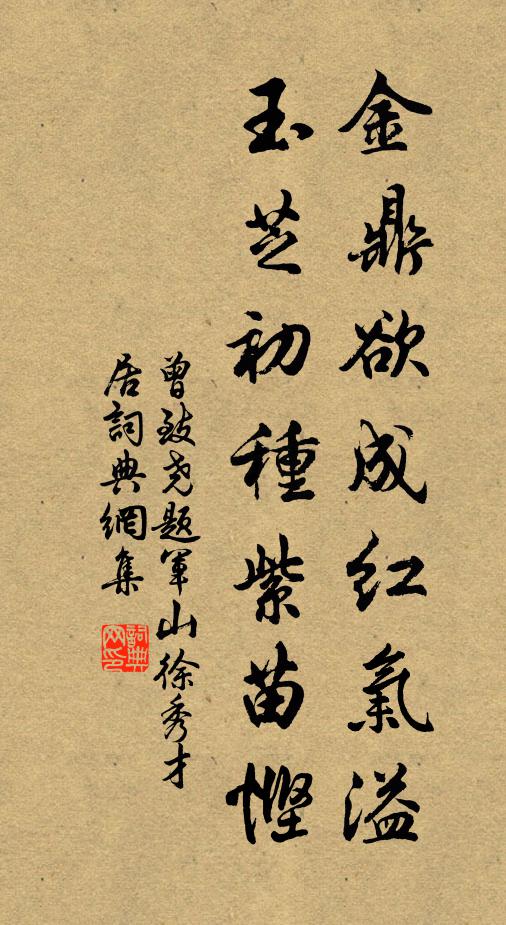 金鼎欲成红氣溢
玉芝初種紫苗慳
曾致尧题軍山徐秀才
居詞典網集
詞典网印